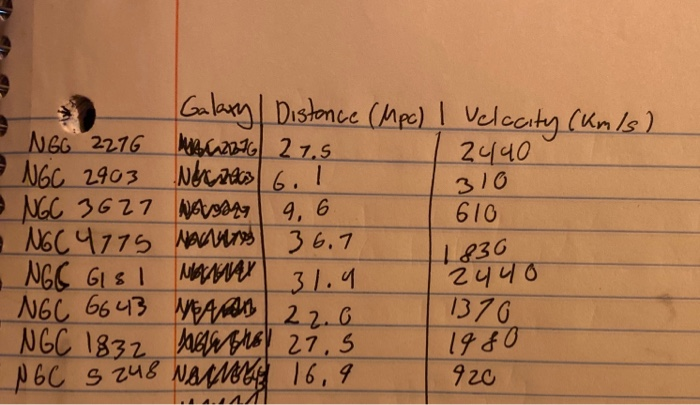 Galaxy | Distance (Mpc) | Velocity (Km/s)
NGC 2276 27.5 2440
NGC 2903 6.1 310
NGC 3627 9.6 610
NGC 4775 36.7 1830
NGC 6181 31.9 2440
NGC 6643 22.0 1370
NGC 1832 27.5 1980
NGC 5248 16.9 920